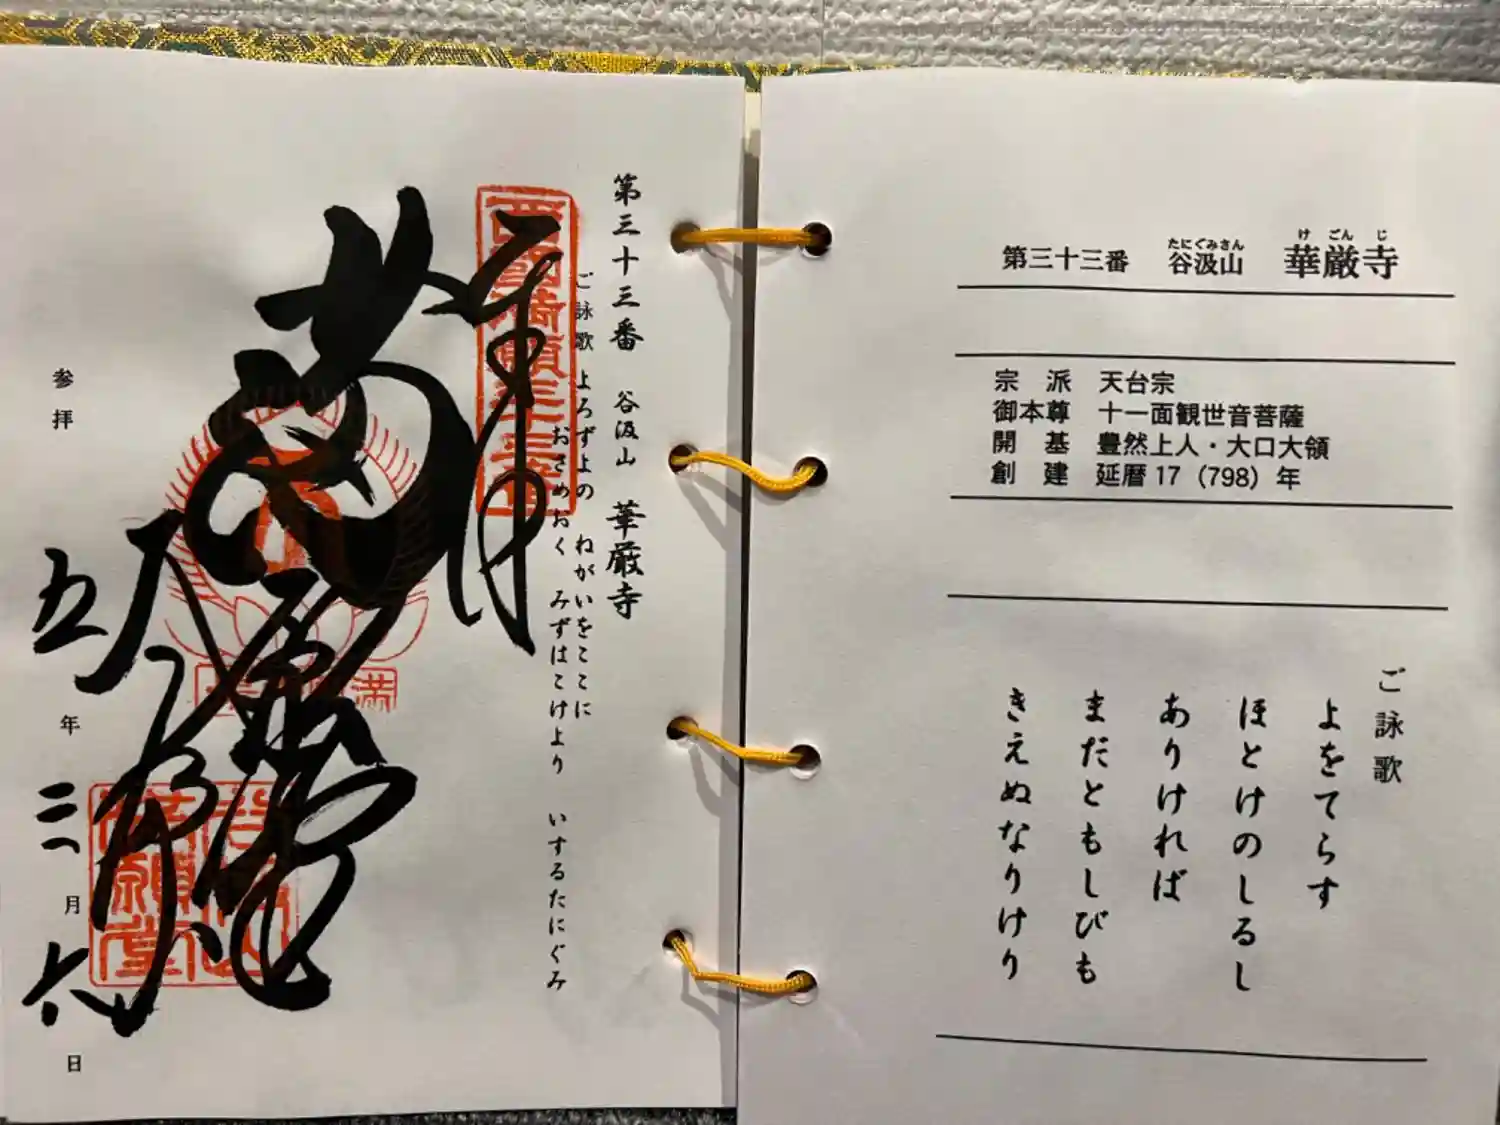 第三十三番 谷汲山 華厳寺
たにぐみさん けごんじ
宗派 天台宗
御本尊 十一面観世音菩薩
開基 豊然上人・大口大領
創建 延暦17(798)年
ご詠歌
よをてらす
ほとけのしるし
ありければ
まだともしびも
きえぬなりけり
第三十三番 谷汲山 華厳寺
ご詠歌 よろずよの ねがいをここに
おさめおく みずはこけより いずるたにぐみ
奉拝
西國満願三十三番
満願堂
参拝
五年三月六日